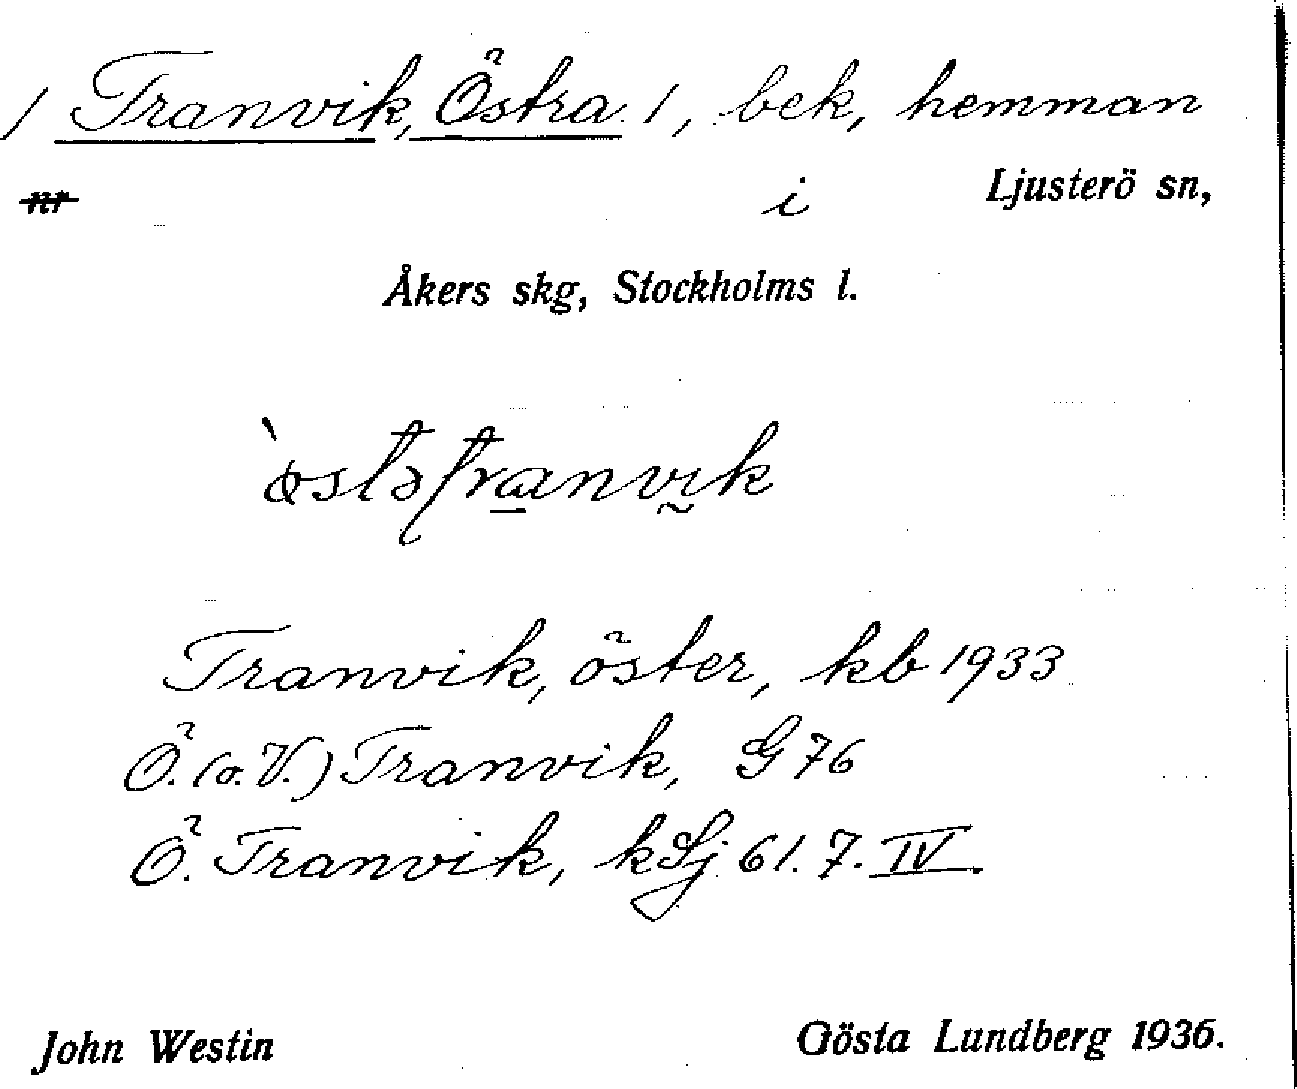 / Tranvik, Östra /, bek, hemman
nr i Ljusterö sn,
Åkers skg, Stockholms l.
Tranvik, öster, kb 1933
Ö. (o. V.) Tranvik, G 76
Ö. Tranvik, k Lj 61. 7. IV.
John Westin Gösta Lundberg 1936.